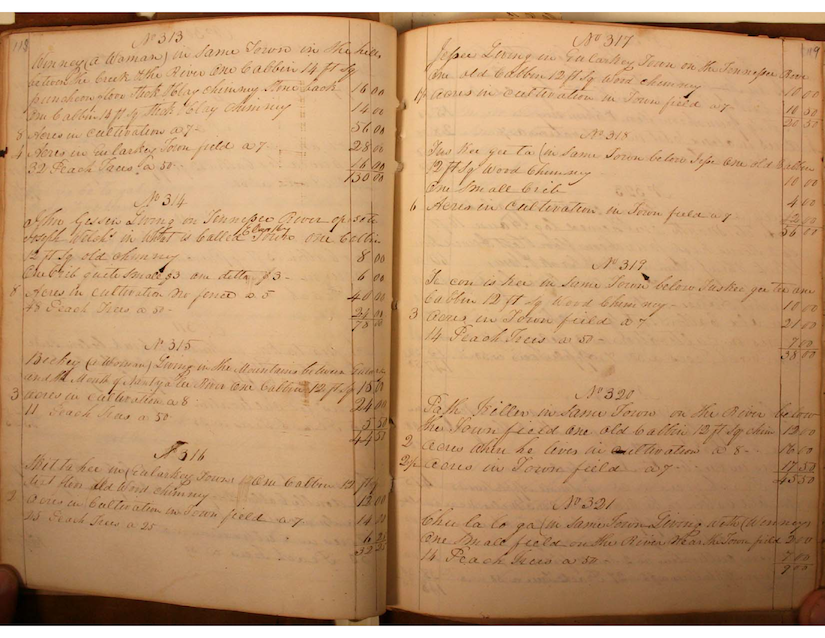 118
No 313
(a Woman) in Same Town in the hills
between the Creek & the River One Cabbin 14 ft Sq
puncheon floor Stick & Clay Chimney Stone back 16 00
One Cabbin 14 ft Sq Stick & Clay Chimney 14 00
8 Acres in Cultivation a 7 - 56 00
4 Acres in Town field a 7 28 00
32 Peach Trees a 50 - 16 00
130 00
No 314
Living on Tennessee River oposite
Joseph in What is Called Town one Cabbin
12 ft Sq old Chimney - 8 00
One Crib quite Small $3 one ditto $3 - 6 00
8 Acres in Cultivation No fence a 5 40 00
48 Peach Trees a 50 - 24 00
78 00
No 315
(a Woman) Living in the Mountains between
and the Mouth of River One Cabbin 12 ft Sq 15 00
3 acres in Cultivation a 8 - 24 00
11 Peach Trees a 50 5 50
44 50
No 316
in Town One Cabbin 12 ft Sq
old Wood Chimney 12 00
2 Acres in Cultivation in Town field a 7 14 00
25 Peach Trees a 25 6 25
32 25
119
No 317
Jesse Living in Town on the Tennessee River
One old Cabbin 12 ft Sq Wood Chimney 10 00
Acres in Cultivation in Town field a 7 10 50
20 50
No 318
(in Same Town below Jesse One old Cabbin
12 ft Sq Wood Chimney 10 00
One Small Crib 4 00
6 Acres in Cultivation in Town field a 7 - 42 00
56 00
No 319
in Same Town below one
Cabbin 12 ft Sq Wood Chimney - 10 00
3 Acres in Town field a 7 21 00
14 Peach Trees a 50 - 7 00
38 00
No 320
Path Killer in Same Town on the River below
the Town field One old Cabbin 12 ft Sq chim 12 00
2 Acres where he lives in Cultivation a 8 - 16 00
2½ Acres in Town field a 7 - 17 50
45 50
No 321
Chu la lo ga (in Same Town Living with
One Small field on the River Near the Town field 2 00
14 Peach Trees a 50 - 7 00
9 00